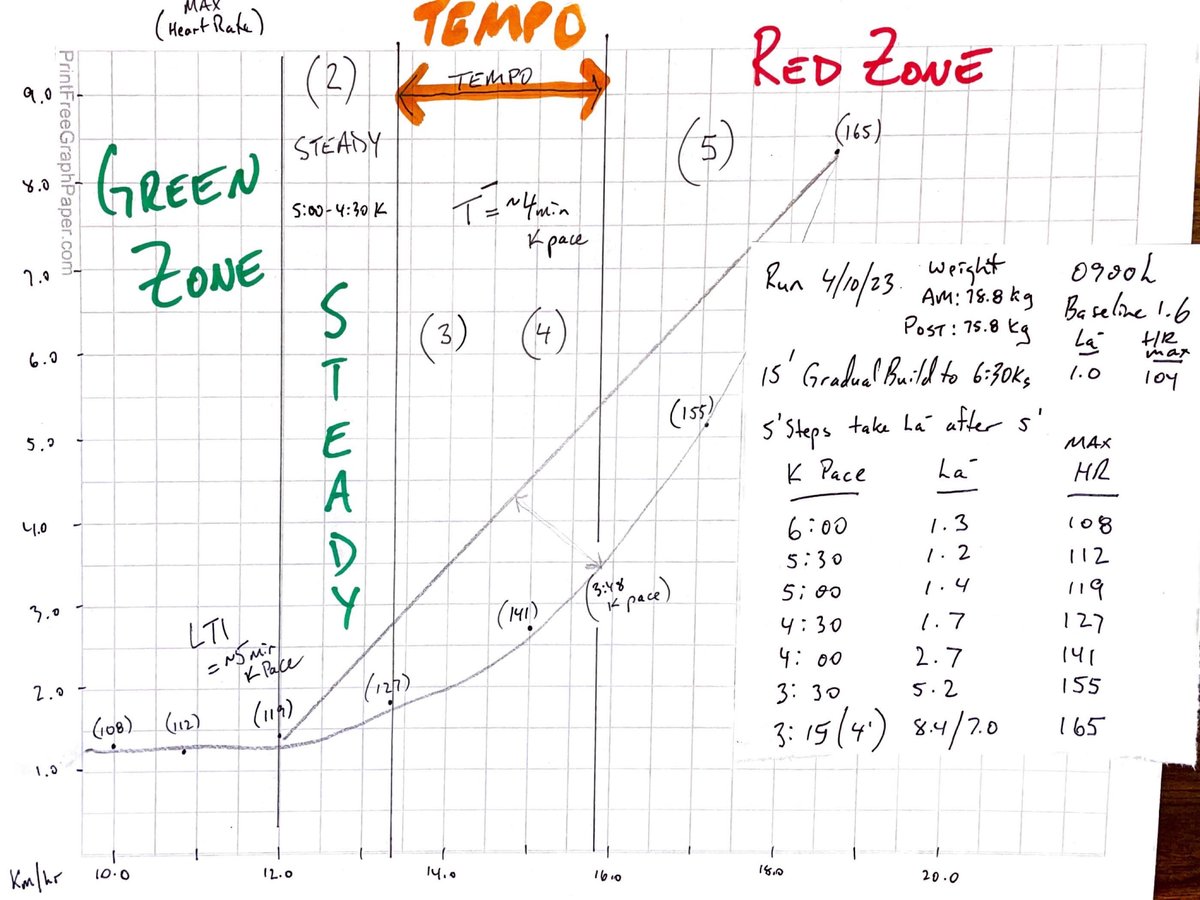 MAX
(Heart Rate)
TEMPO
RED ZONE
PrintFreeGraphPaper.com
(2)
TEMPO
STEADY
5:00-4:30 K
GREEN
ZONE
STEADY
T = ~4 min
K pace
(3)
(4)
(5)
(165)
(155)
(141)
(3:48
K pace)
LT1
= ~5 min
K Pace
(127)
(119)
(112)
(108)
9.0
8.0
7.0
6.0
5.0
4.0
3.0
2.0
1.0
Km/hr
10.0
12.0
14.0
16.0
18.0
20.0
Run 4/10/23
Weight
AM: 78.8 kg
Post: 75.8 kg
0900h
Baseline 1.6
La- HR max
15' Gradual Build to 6:30Ks 1.0 104
5' Steps take La- after 5'
K Pace La- MAX HR
6:00 1.3 108
5:30 1.2 112
5:00 1.4 119
4:30 1.7 127
4:00 2.7 141
3:30 5.2 155
3:15 (4') 8.4/7.0 165